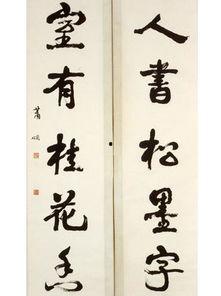 人書松墨字
室有桂花香
蕭嫻